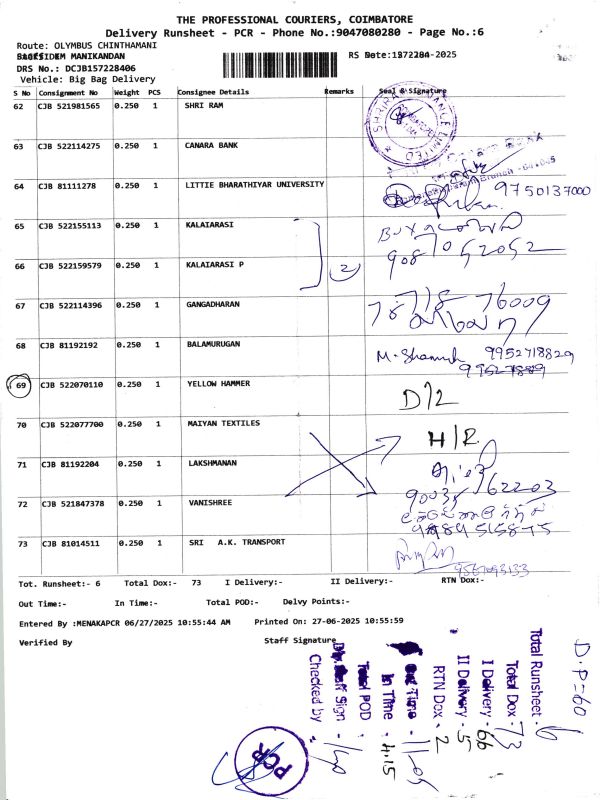 THE PROFESSIONAL COURIERS, COIMBATORE
Delivery Runsheet - PCR - Phone No.:9047080280 - Page No.:6
Route: OLYMBUS CHINTHAMANI
MANIKANDAN
RS No
-2025
DRS No.: DCJB157228406
Vehicle: Big Bag Delivery
S No Consignment No Weight PCS Consignee Details Remarks Seal & Signature
62 CJB 521981565 0.250 1 SHRI RAM
63 CJB 522114275 0.250 1 CANARA BANK
64 CJB 81111278 0.250 1 LITTIE BHARATHIYAR UNIVERSITY 9750137000
65 CJB 522155113 0.250 1 KALAIARASI
66 CJB 522159579 0.250 1 KALAIARASI P 2 908 7052052
67 CJB 522114396 0.250 1 GANGADHARAN 78 718 76009
68 CJB 81192192 0.250 1 BALAMURUGAN 9952718829
69 CJB 522070110 0.250 1 YELLOW HAMMER D/2
70 CJB 522077700 0.250 1 MAIYAN TEXTILES H/R
71 CJB 81192204 0.250 1 LAKSHMANAN
72 CJB 521847378 0.250 1 VANISHREE 90035 62203
73 CJB 81014511 0.250 1 SRI A.K. TRANSPORT
Tot. Runsheet:- 6 Total Dox:- 73 I Delivery:- II Delivery:- RTN Dox:-
Out Time:- In Time:- Total POD:- Delvy Points:-
Entered By :MENAKAPCR 06/27/2025 10:55:44 AM Printed On: 27-06-2025 10:55:59
Verified By Staff Signature
D.P=60
Total Runsheet - 6
Total Dox - 73
I Delivery - 66
II Delivery - 5
RTN Dox - 2
Out Time - 11.05
In Time - 4.15
Total POD
Sign
Checked by
PCR